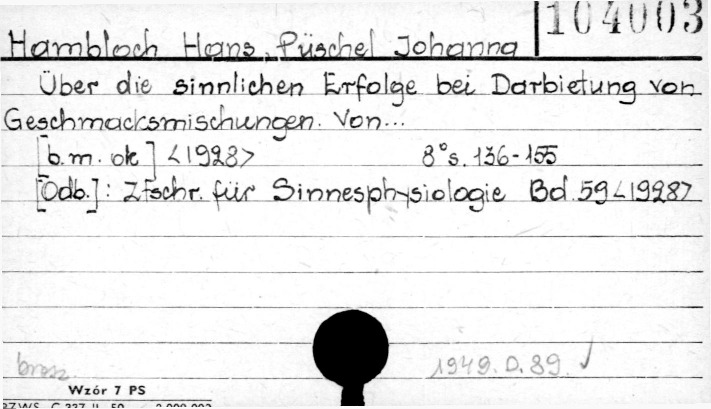 104003
Hambloch Hans, Püschel Johanna
Über die sinnlichen Erfolge bei Darbietung von
Geschmacksmischungen. Von...
[b.m. ok] <1928> 8° s. 136-155
[Odb.]: Ztschr. für Sinnesphysiologie Bd. 59<1928>
brosz. 1949.D.89. ✓
Wzór 7 PS